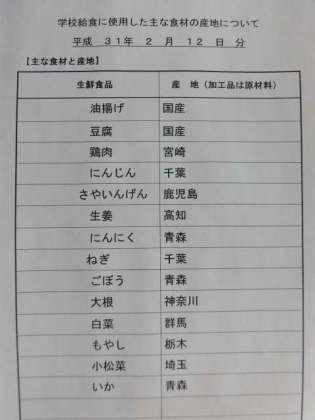 学校給食に使用した主な食材の産地について
平成 31年 2 月 12 日 分
【主な食材と産地】
生鮮食品 産 地（加工品は原材料）
油揚げ 国産
豆腐 国産
鶏肉 宮崎
にんじん 千葉
さやいんげん 鹿児島
生姜 高知
にんにく 青森
ねぎ 千葉
ごぼう 青森
大根 神奈川
白菜 群馬
もやし 栃木
小松菜 埼玉
いか 青森